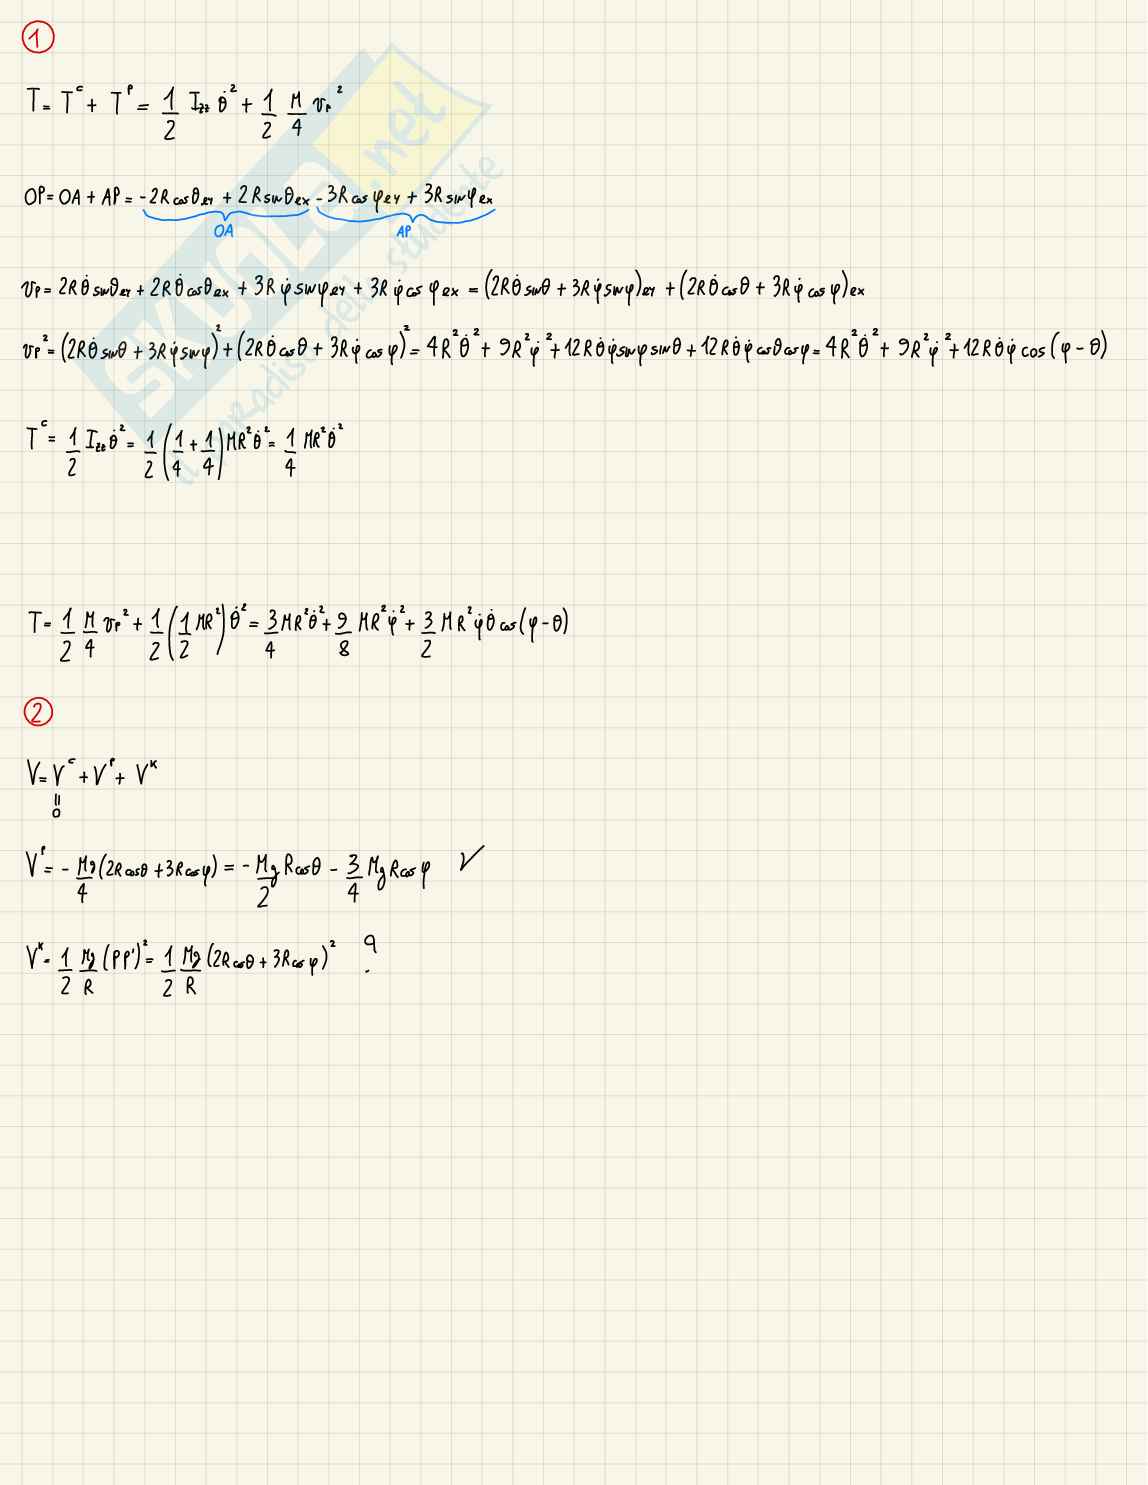 1
T = T^c + T^P = 1/2 I_zz θ̇² + 1/2 M/4 v_P²
OP = OA + AP = -2R cosθ ey + 2R sinθ ex - 3R cosφ ey + 3R sinφ ex
OA AP
v_P = 2Rθ̇ sinθ ey + 2Rθ̇ cosθ ex + 3Rφ̇ sinφ ey + 3Rφ̇ cosφ ex = (2Rθ̇ sinθ + 3Rφ̇ sinφ) ey + (2Rθ̇ cosθ + 3Rφ̇ cosφ) ex
v_P² = (2Rθ̇ sinθ + 3Rφ̇ sinφ)² + (2Rθ̇ cosθ + 3Rφ̇ cosφ)² = 4R²θ̇² + 9R²φ̇² + 12Rθ̇φ̇ sinφ sinθ + 12Rθ̇φ̇ cosθ cosφ = 4R²θ̇² + 9R²φ̇² + 12Rθ̇φ̇ cos(φ - θ)
T^c = 1/2 I_zz θ̇² = 1/2 (1/4 + 1/4) MR²θ̇² = 1/4 MR²θ̇²
T = 1/2 M/4 v_P² + 1/2 (1/2 MR²) θ̇² = 3/4 MR²θ̇² + 9/8 MR²φ̇² + 3/2 MR²φ̇θ̇ cos(φ - θ)
2
V = V^c + V^P + V^K
= 0
V^P = - Mg/4 (2R cosθ + 3R cosφ) = - Mg/2 R cosθ - 3/4 Mg R cosφ ✓
V^K = 1/2 Mg/R (PP')² = 1/2 Mg/R (2R cosθ + 3R cosφ)² ?
SKUOLA.net
il paradiso dello studente